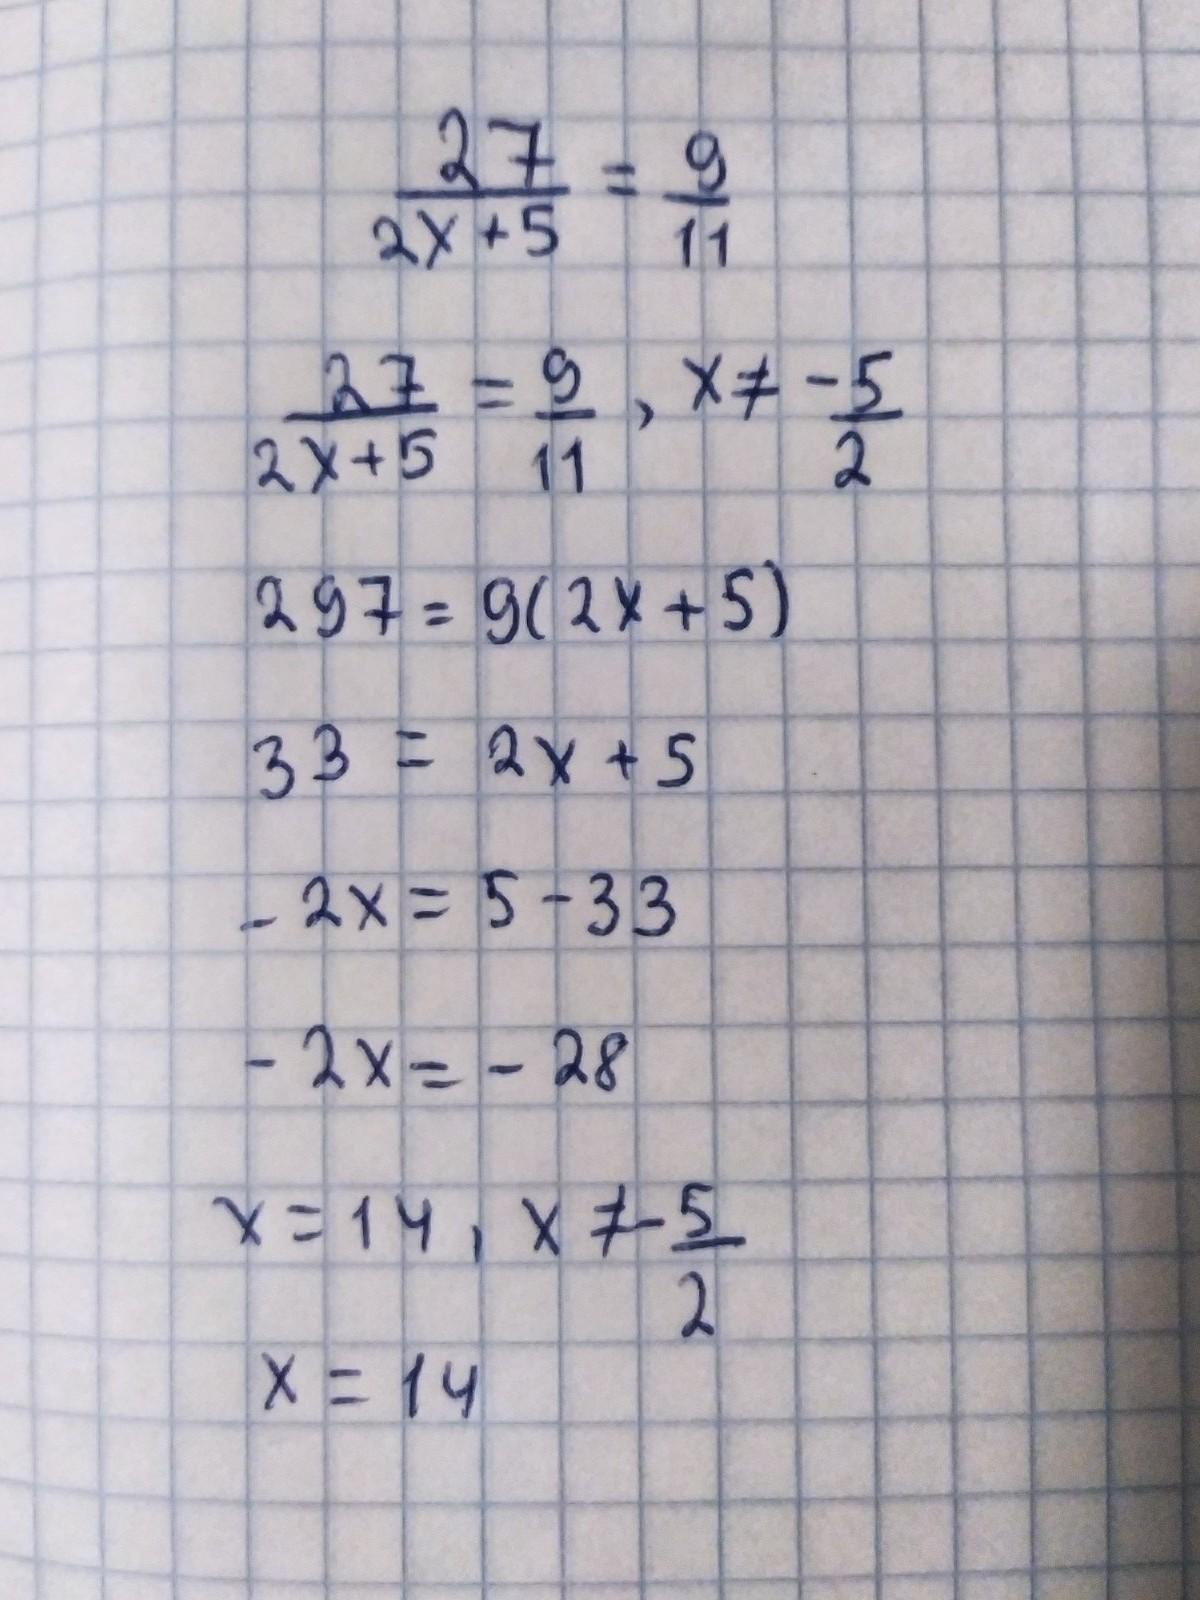 27/(2x+5) = 9/11
27/(2x+5) = 9/11, x ≠ -5/2
297 = 9(2x+5)
33 = 2x+5
-2x = 5-33
-2x = -28
x = 14, x ≠ -5/2
x = 14